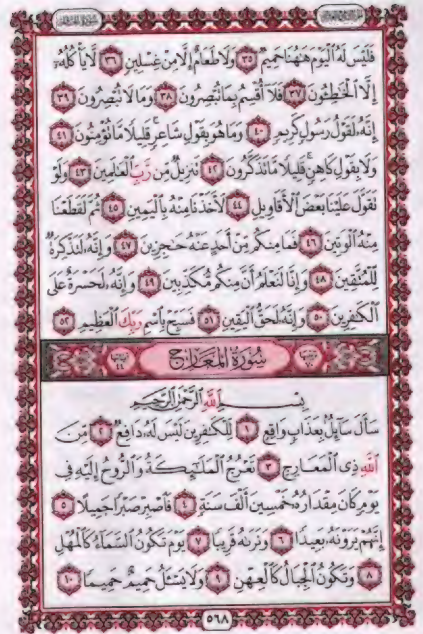 فَلَيْسَ لَهُ ٱلْيَوْمَ هَٰهُنَا حَمِيمٌ ٣٥ وَلَا طَعَامٌ إِلَّا مِنْ غِسْلِينٍ ٣٦ لَّا يَأْكُلُهُۥٓ
إِلَّا ٱلْخَٰطِـُٔونَ ٣٧ فَلَآ أُقْسِمُ بِمَا تُبْصِرُونَ ٣٨ وَمَا لَا تُبْصِرُونَ ٣٩
إِنَّهُۥ لَقَوْلُ رَسُولٍ كَرِيمٍ ٤٠ وَمَا هُوَ بِقَوْلِ شَاعِرٍ ۚ قَلِيلًا مَّا تُؤْمِنُونَ ٤١
وَلَا بِقَوْلِ كَاهِنٍ ۚ قَلِيلًا مَّا تَذَكَّرُونَ ٤٢ تَنزِيلٌ مِّن رَّبِّ ٱلْعَٰلَمِينَ ٤٣ وَلَوْ
تَقَوَّلَ عَلَيْنَا بَعْضَ ٱلْأَقَاوِيلِ ٤٤ لَأَخَذْنَا مِنْهُ بِٱلْيَمِينِ ٤٥ ثُمَّ لَقَطَعْنَا
مِنْهُ ٱلْوَتِينَ ٤٦ فَمَا مِنكُم مِّنْ أَحَدٍ عَنْهُ حَٰجِزِينَ ٤٧ وَإِنَّهُۥ لَتَذْكِرَةٌ
لِّلْمُتَّقِينَ ٤٨ وَإِنَّا لَنَعْلَمُ أَنَّ مِنكُم مُّكَذِّبِينَ ٤٩ وَإِنَّهُۥ لَحَسْرَةٌ عَلَى
ٱلْكَٰفِرِينَ ٥٠ وَإِنَّهُۥ لَحَقُّ ٱلْيَقِينِ ٥١ فَسَبِّحْ بِٱسْمِ رَبِّكَ ٱلْعَظِيمِ ٥٢
سُورَةُ المَعَارِجِ
بِسْمِ ٱللَّهِ ٱلرَّحْمَٰنِ ٱلرَّحِيمِ
سَأَلَ سَآئِلٌۢ بِعَذَابٍ وَاقِعٍ ١ لِّلْكَٰفِرِينَ لَيْسَ لَهُۥ دَافِعٌ ٢ مِّنَ
ٱللَّهِ ذِى ٱلْمَعَارِجِ ٣ تَعْرُجُ ٱلْمَلَٰٓئِكَةُ وَٱلرُّوحُ إِلَيْهِ فِى
يَوْمٍ كَانَ مِقْدَارُهُۥ خَمْسِينَ أَلْفَ سَنَةٍ ٤ فَٱصْبِرْ صَبْرًا جَمِيلًا ٥
إِنَّهُمْ يَرَوْنَهُۥ بَعِيدًا ٦ وَنَرَىٰهُ قَرِيبًا ٧ يَوْمَ تَكُونُ ٱلسَّمَآءُ كَٱلْمُهْلِ
٨ وَتَكُونُ ٱلْجِبَالُ كَٱلْعِهْنِ ٩ وَلَا يَسْـَٔلُ حَمِيمٌ حَمِيمًا ١٠
٥٦٨